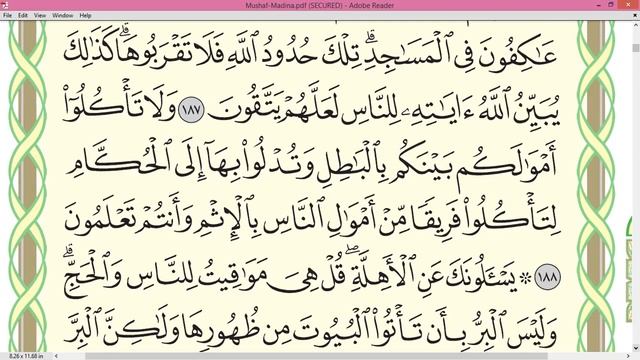 Mushaf-Madina.pdf (SECURED) - Adobe Reader
File Edit View Window Help
عَٰكِفُونَ فِي ٱلۡمَسَٰجِدِۗ تِلۡكَ حُدُودُ ٱللَّهِ فَلَا تَقۡرَبُوهَاۗ كَذَٰلِكَ
يُبَيِّنُ ٱللَّهُ ءَايَٰتِهِۦ لِلنَّاسِ لَعَلَّهُمۡ يَتَّقُونَ ١٨٧ وَلَا تَأۡكُلُوٓاْ
أَمۡوَٰلَكُم بَيۡنَكُم بِٱلۡبَٰطِلِ وَتُدۡلُواْ بِهَآ إِلَى ٱلۡحُكَّامِ
لِتَأۡكُلُواْ فَرِيقٗا مِّنۡ أَمۡوَٰلِ ٱلنَّاسِ بِٱلۡإِثۡمِ وَأَنتُمۡ تَعۡلَمُونَ
١٨٨ ۞ يَسۡـَٔلُونَكَ عَنِ ٱلۡأَهِلَّةِۖ قُلۡ هِيَ مَوَٰقِيتُ لِلنَّاسِ وَٱلۡحَجِّۗ
وَلَيۡسَ ٱلۡبِرُّ بِأَن تَأۡتُواْ ٱلۡبُيُوتَ مِن ظُهُورِهَا وَلَٰكِنَّ ٱلۡبِرَّ
8.26 x 11.68 in